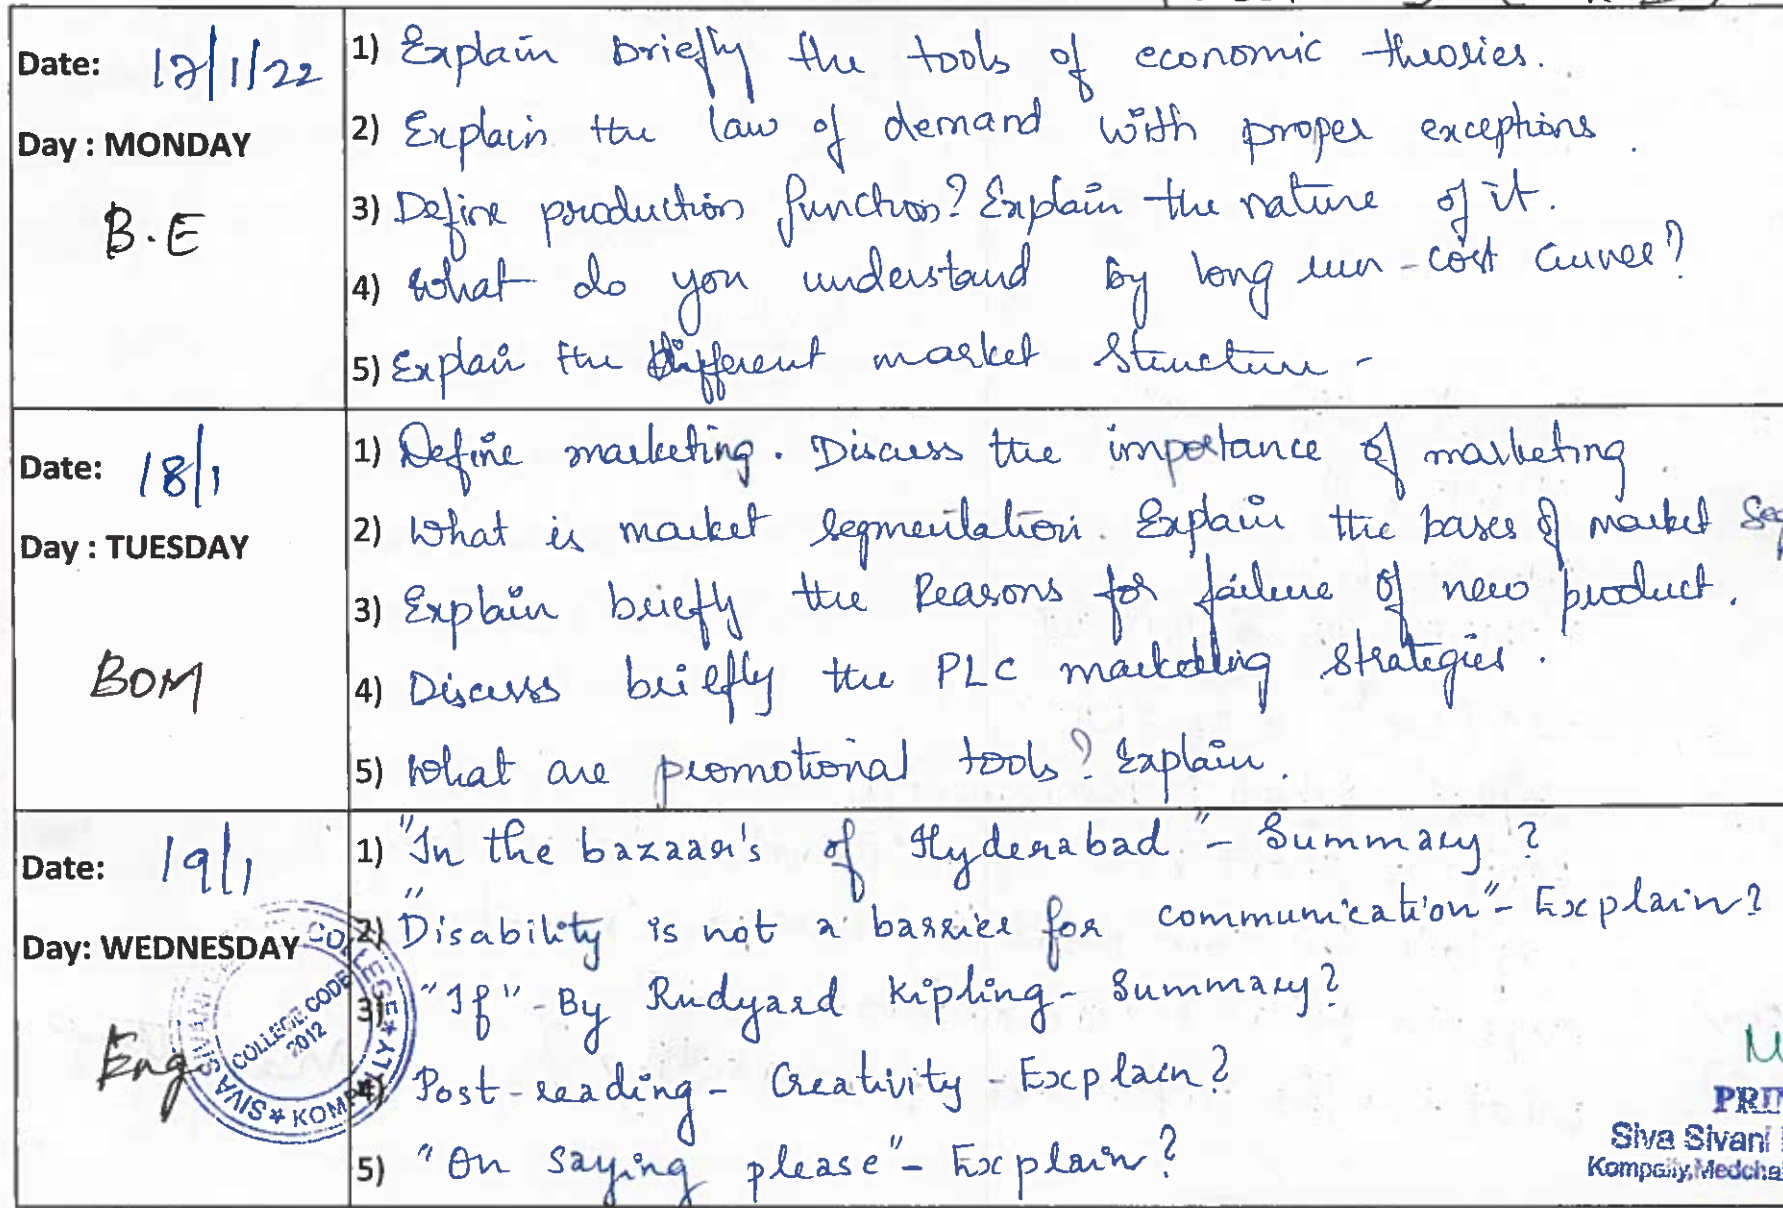 Date: 17/1/22
Day : MONDAY
B.E
1) Explain briefly the tools of economic theories.
2) Explain the law of demand with proper exceptions.
3) Define production function? Explain the nature of it.
4) What do you understand by long run-cost curve?
5) Explain the different market structure -
Date: 18/1
Day : TUESDAY
BOM
1) Define marketing. Discuss the importance of marketing.
2) What is market segmentation. Explain the bases of market Seg
3) Explain briefly the Reasons for failure of new product.
4) Discuss briefly the PLC marketing strategies.
5) What are promotional tools? Explain.
Date: 19/1
Day: WEDNESDAY
Eng
1) "In the bazaar's of Hyderabad" - Summary?
2) "Disability is not a barrier for communication" - Explain?
3) "If" - By Rudyard Kipling - Summary?
4) Post-reading - Creativity - Explain?
5) "On saying please" - Explain?
COLLEGE CODE
2012
SIVA SIVANI
COLLEGE
KOMPALLY
PRIN
Siva Sivani
Kompally, Medchal